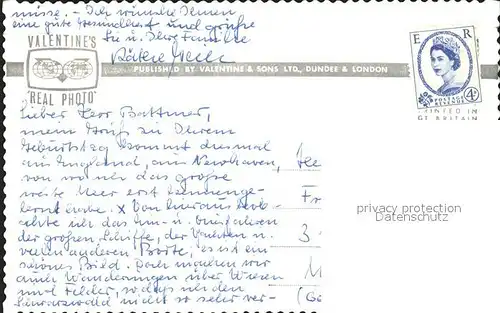 misse. - Ich wünsche Ihnen
eine gute Gesundheit und grüße
Sie u. Ihre Familie
Käthe
VALENTINE'S
"REAL PHOTO"
PUBLISHED BY VALENTINE & SONS LTD., DUNDEE & LONDON
E R
POSTAGE REVENUE 4D
PRINTED IN
GT BRITAIN
Lieber Herr Battmer,
mein Gruß zu Ihrem
Geburtstag kommt diesmal
aus England, aus Newhaven,
von wo ich das große
weite Meer erst kennenge-
lernt habe. x Von hier aus beob-
achte ich das Ein- u. Ausfahren
der großen Schiffe, der Yachten u.
vielen anderen Boote; es ist ein
schönes Bild. Doch machen wir
auch Wanderungen über Wiesen
und Felder, so daß ich den
Schwarzwald nicht so sehr ver-
He
Fr
3
(Ge
privacy protection
Datenschutz